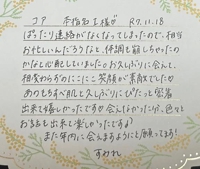 コア 本指名Ｉ様が R7.11.18
ぱったり連絡がなくなってしまったので、相当
お忙しいんだろうなと、体調も崩しちゃったの
かなと心配していました お久しぶりに会えて、
相変わらずのにこにこ笑顔が素敵でした
あのもちすべ肌も久しぶりにぴたっと密着
出来て嬉しかったです 会えなかった分、色々と
お話も出来て楽しかったですね♪
また年内に会えますようにと願ってます!
すみれ